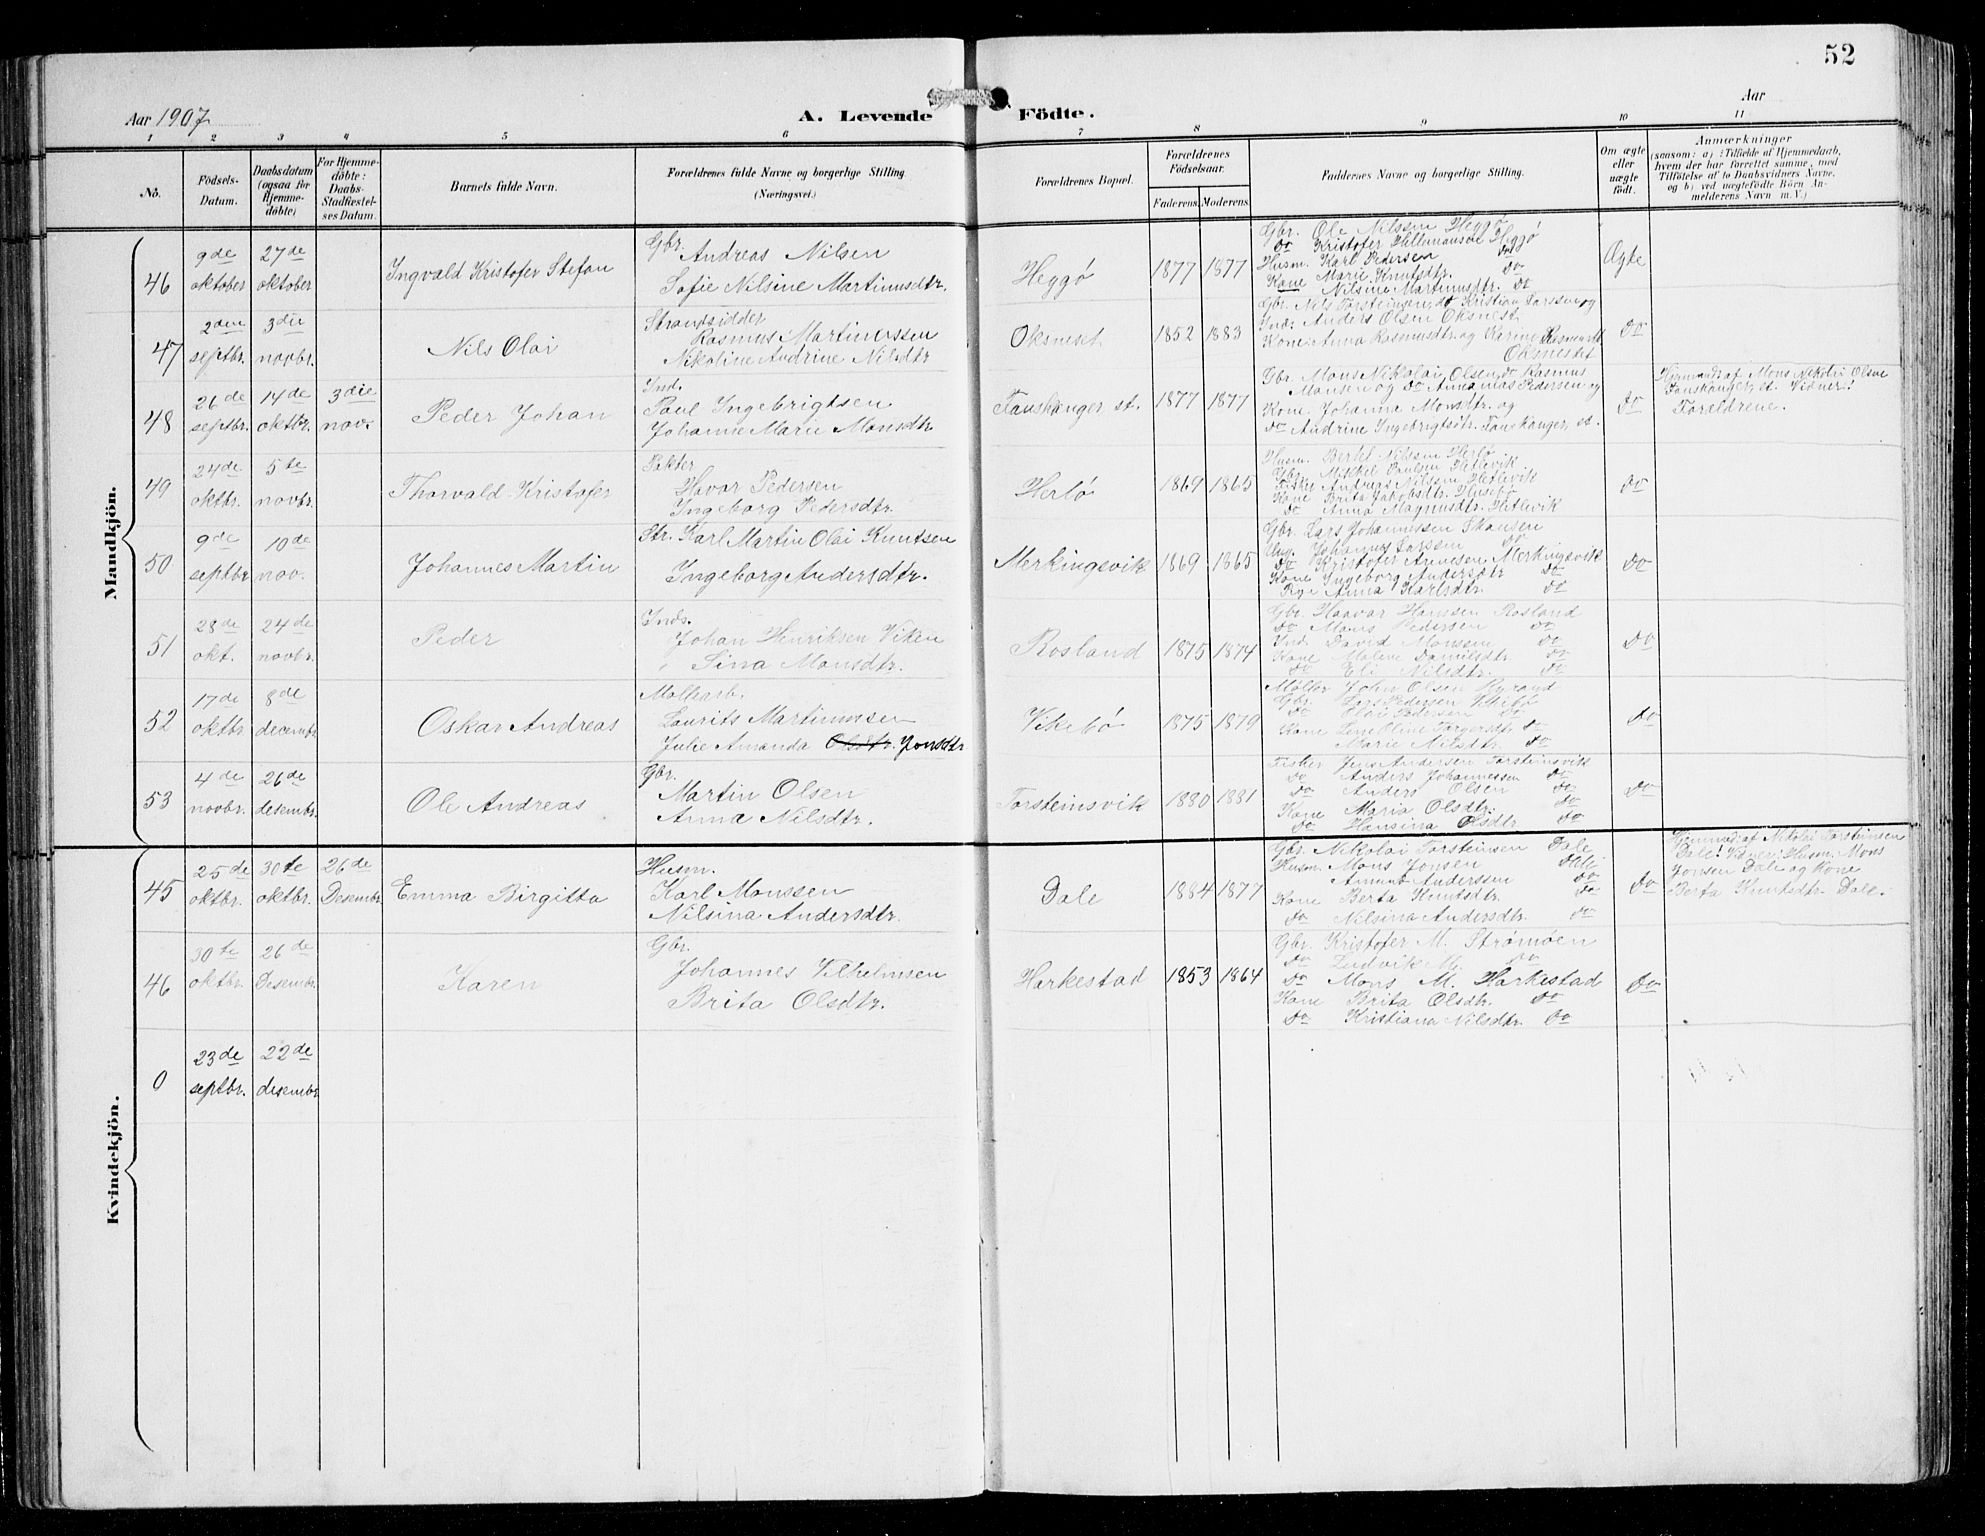 52
Aar 1907
A. Levende Födte.
Aar
1 2 3 4 5 6 7 8 9 10 11
No.
Födsels-Datum.
Daabsdatum (ogsaa for Hjemme-döbte)
For Hjemme-döbte: Daabs-Stadfæstel-ses Datum.
Barnets fulde Navn.
Forældrenes fulde Navne og borgerlige Stilling (Næringsvei.)
Forældrenes Bopæl.
Forældrenes Födselsaar.
Faderens. Moderens.
Faddernes Navne og borgerlige Stilling.
Om ægte eller uægte födt.
Anmærkninger
(saasom: a) i Tilfælde af Hjemmedaab,
hvem der har forrettet samme, med
Tilföielse af to Daabsvidners Navne,
og b) ved uægtefödte Börn An-
melderens Navn m. V.)
Mandkjön.
46
9de oktober
27de oktober
Ingvald Kristofer Stefan
Gbr. Andreas Nilsen
Sofie Nilsine Martinusdtr.
Heggö
1877 1877
Gbr. Ole Nilssen Heggö
Do Kristofer Heggö
Husm. Karl Pedersen Do
Kone Marie Knutsdtr. Do
Nilsine Martinusdtr. Do
Ægte
47
2den septbr.
3die novbr.
Nils Olai
Strandsidder
Rasmus Martinussen
Nikoline Andrine Nilsdtr
Oksneset
1852 1883
Gbr. Nils Torsteinsen, do Kristian Larssen og
Ind: Anders Olsen Oksnest.
Kone: Anna Rasmusdtr. og Karine Rasmusdt
Oksneset
Do
48
26de septbr.
14de oktbr.
3die nov.
Peder Johan
Ind.
Paul Ingebrigtsen
Johanne Marie Monsdtr
Fauskanger st.
1877 1877
Gbr. Mons Nikolai Olsen, do Rasmus
Monsen og Do Annanias Pedersen og
Kone Johanna Monsdtr. og
Do Andrine Ingebrigtsdtr. Fauskanger, st.
Do
Hjemmed. af Mons Nikolai Olsen
Fauskanger, st. Vidner:
Foreldrene.
49
24de oktbr.
5te novbr.
Thorvald Kristofer
Pakter
Havar Pedersen
Ingeborg Pedersdtr.
Herlö
1869 1865
Husm. Bertel Nilssen Herlö
Gbr. Mikkel Paulsen Hetlevik
Fisker Andreas Nilssen Hetlevik
Kone Brita Jakobsdtr. Husebö
Do Anna Magnusdtr. Hetlevik
Do
50
9de septbr
10de nov.
Johannes Martin
Str. Karl Martin Olai Knutsen
Ingeborg Andersdtr.
Merkingsvik
1869 1865
Gbr. Lars Johannessen Skansen
Ung. Johannes Larssen Do
Do Kristofer Arnesen Merkingsvik
Kone Ingeborg Andersdtr Do
Pige Anna Karlsdtr. Do
Do
51
28de okt.
24de novbr.
Peder
Inds.
Johan Henriksen Viken
Sina Monsdtr.
Rosland
1875 1874
Gbr. Haavar Hanssen Rosland
Do Mons Pedersen Do
Ind. David Monssen Do
Kone Malene Danielsdtr Do
Do Eli Nilsdtr. Do
Do
52
17de oktbr
8de decembr
Oskar Andreas
Mollearb.
Laurits Martinussen
Julie Amanda Olsdtr. Jonsdtr
Vikebö
1875 1879
Møller John Olsen
Gbr. Lars Pedersen Vikebö
Do Olai Pedersen Do
Kone Lene Oline Torgersdtr Do
Marie Nilsdtr. Do
Do
53
4de novbr.
26de desembr.
Ole Andreas
Gbr.
Martin Olsen
Anna Nilsdtr.
Torsteinsvik
1880 1881
Fisker Jens Andersen Torsteinsvik
Do Anders Johannessen Do
Do Anders Olsen Do
Kone Maria Olsdtr. Do
Do Hansina Olsdtr Do
Do
Kvindekjön.
45
25de oktbr.
30te oktbr.
26de Desembr.
Emma Birgitta
Husm.
Karl Monssen
Nilsina Andersdtr.
Dale
1884 1877
Gbr. Nikolai Torsteinsen Dale
Husm. Mons Jonsen Dale
Anderssen Do
Kone Berta Knutsdtr. Do
Do Nilsina Andersdtr. Do
Do
Hjemmed. af Nikolai Torsteinsen
Dale! Vidner: Husm. Mons
Jonsen Dale og Kone
Berta Knutsdtr. Dale.
46
30te oktbr.
26de Desembr.
Karen
Gbr.
Johannes Vilhelmsen
Brita Olsdtr.
Harkestad
1853 1864
Gbr. Kristofer M. Strømøen
Do Ludvik M. Do
Do Mons M. Harkestad
Kone Brita Olsdtr. Do
Do Kristiana Nilsdtr. Do
Do
0
23de septbr.
22de desembr